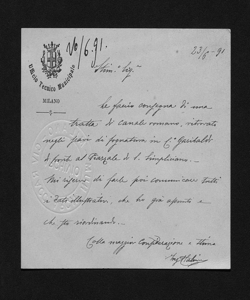 26/6.91.
23/6-91
Ufficio Tecnico Municipale
MILANO
Stim.° Sig.
Le faccio consegna di una
tratta di canale romano, ritrovato
negli scavi di fognatura in C.° Garibaldi
di fronte al Piazzale di S. Simpliciano.
Mi riservo di farle poi comunicare tutti
i dati illustrativi, che ho già aperto e
che sto riordinando.
Colla maggior considerazione e stima